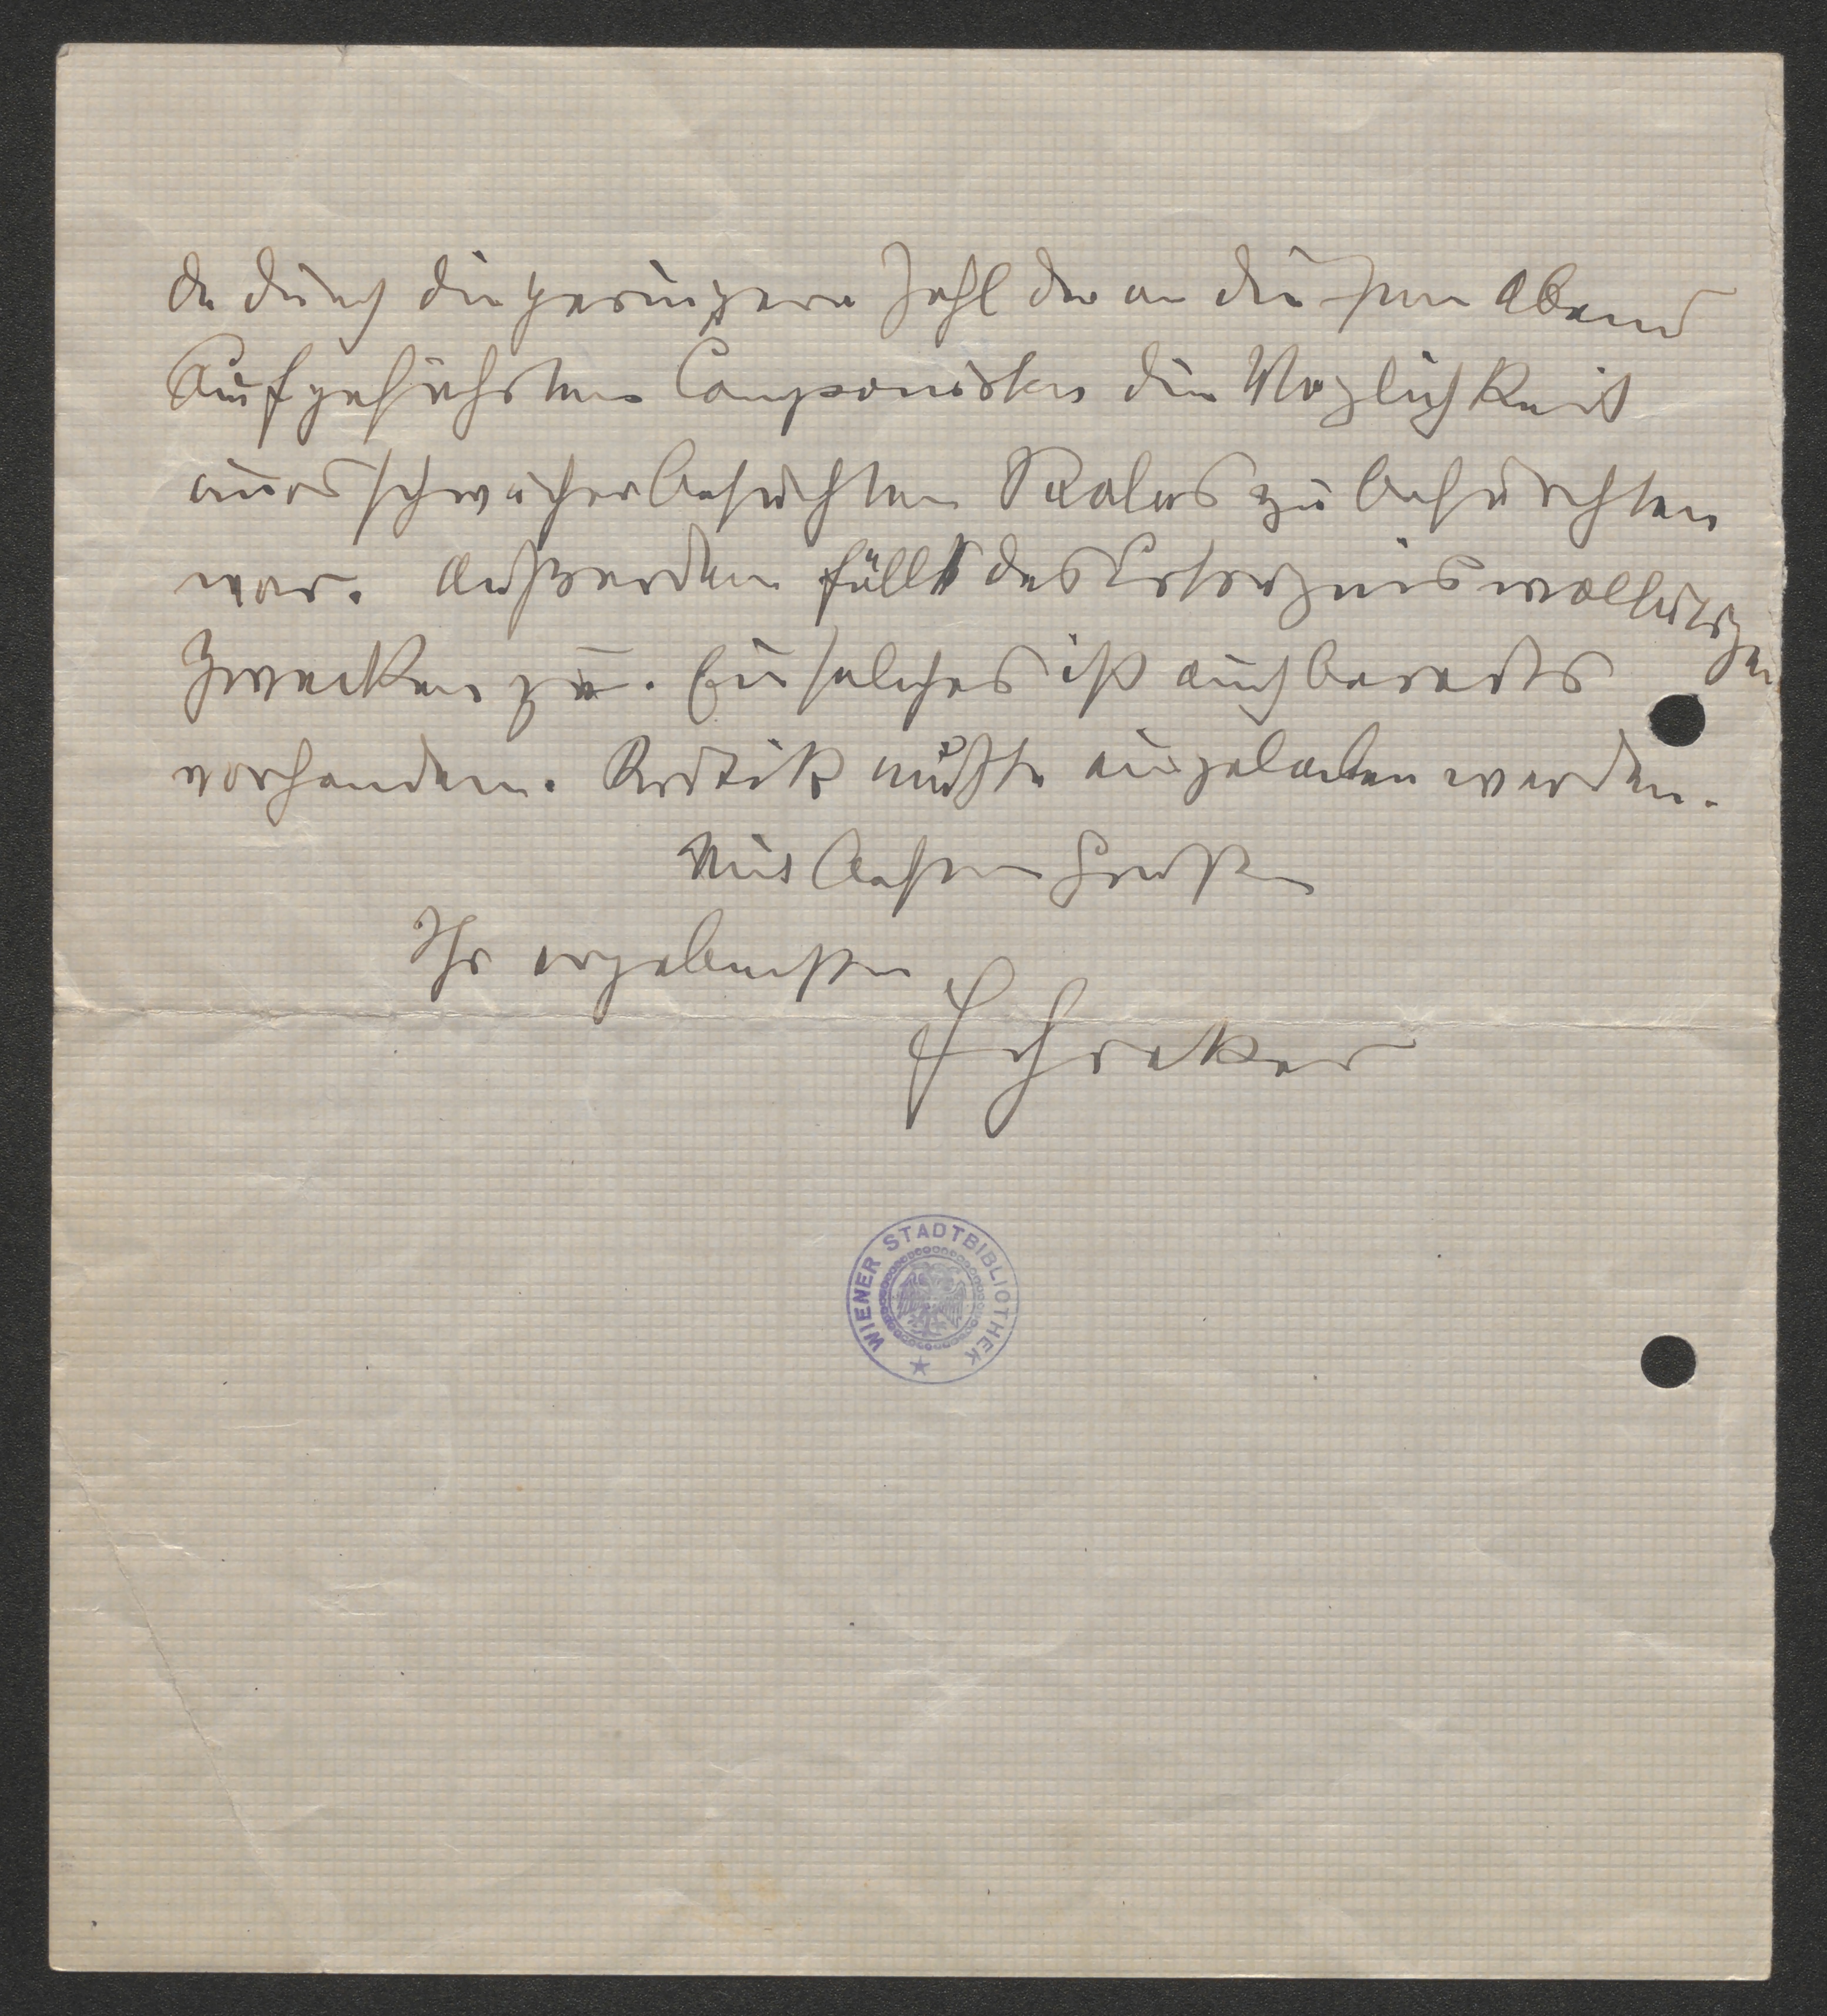 da durch die geringere Zahl der an diesem Abend
Aufgeführten Componisten die Möglichkeit
eines schwächer besuchten Saales zu befürchten
war. Außerdem fällt das Erträgnis wohltätigen
Zwecken zu. Ein solches ist auch bereits
vorhanden. Kritik müßte eingeladen werden.
Mit besten Grüßen
Ihr ergebenster
Schreker
WIENER STADTBIBLIOTHEK